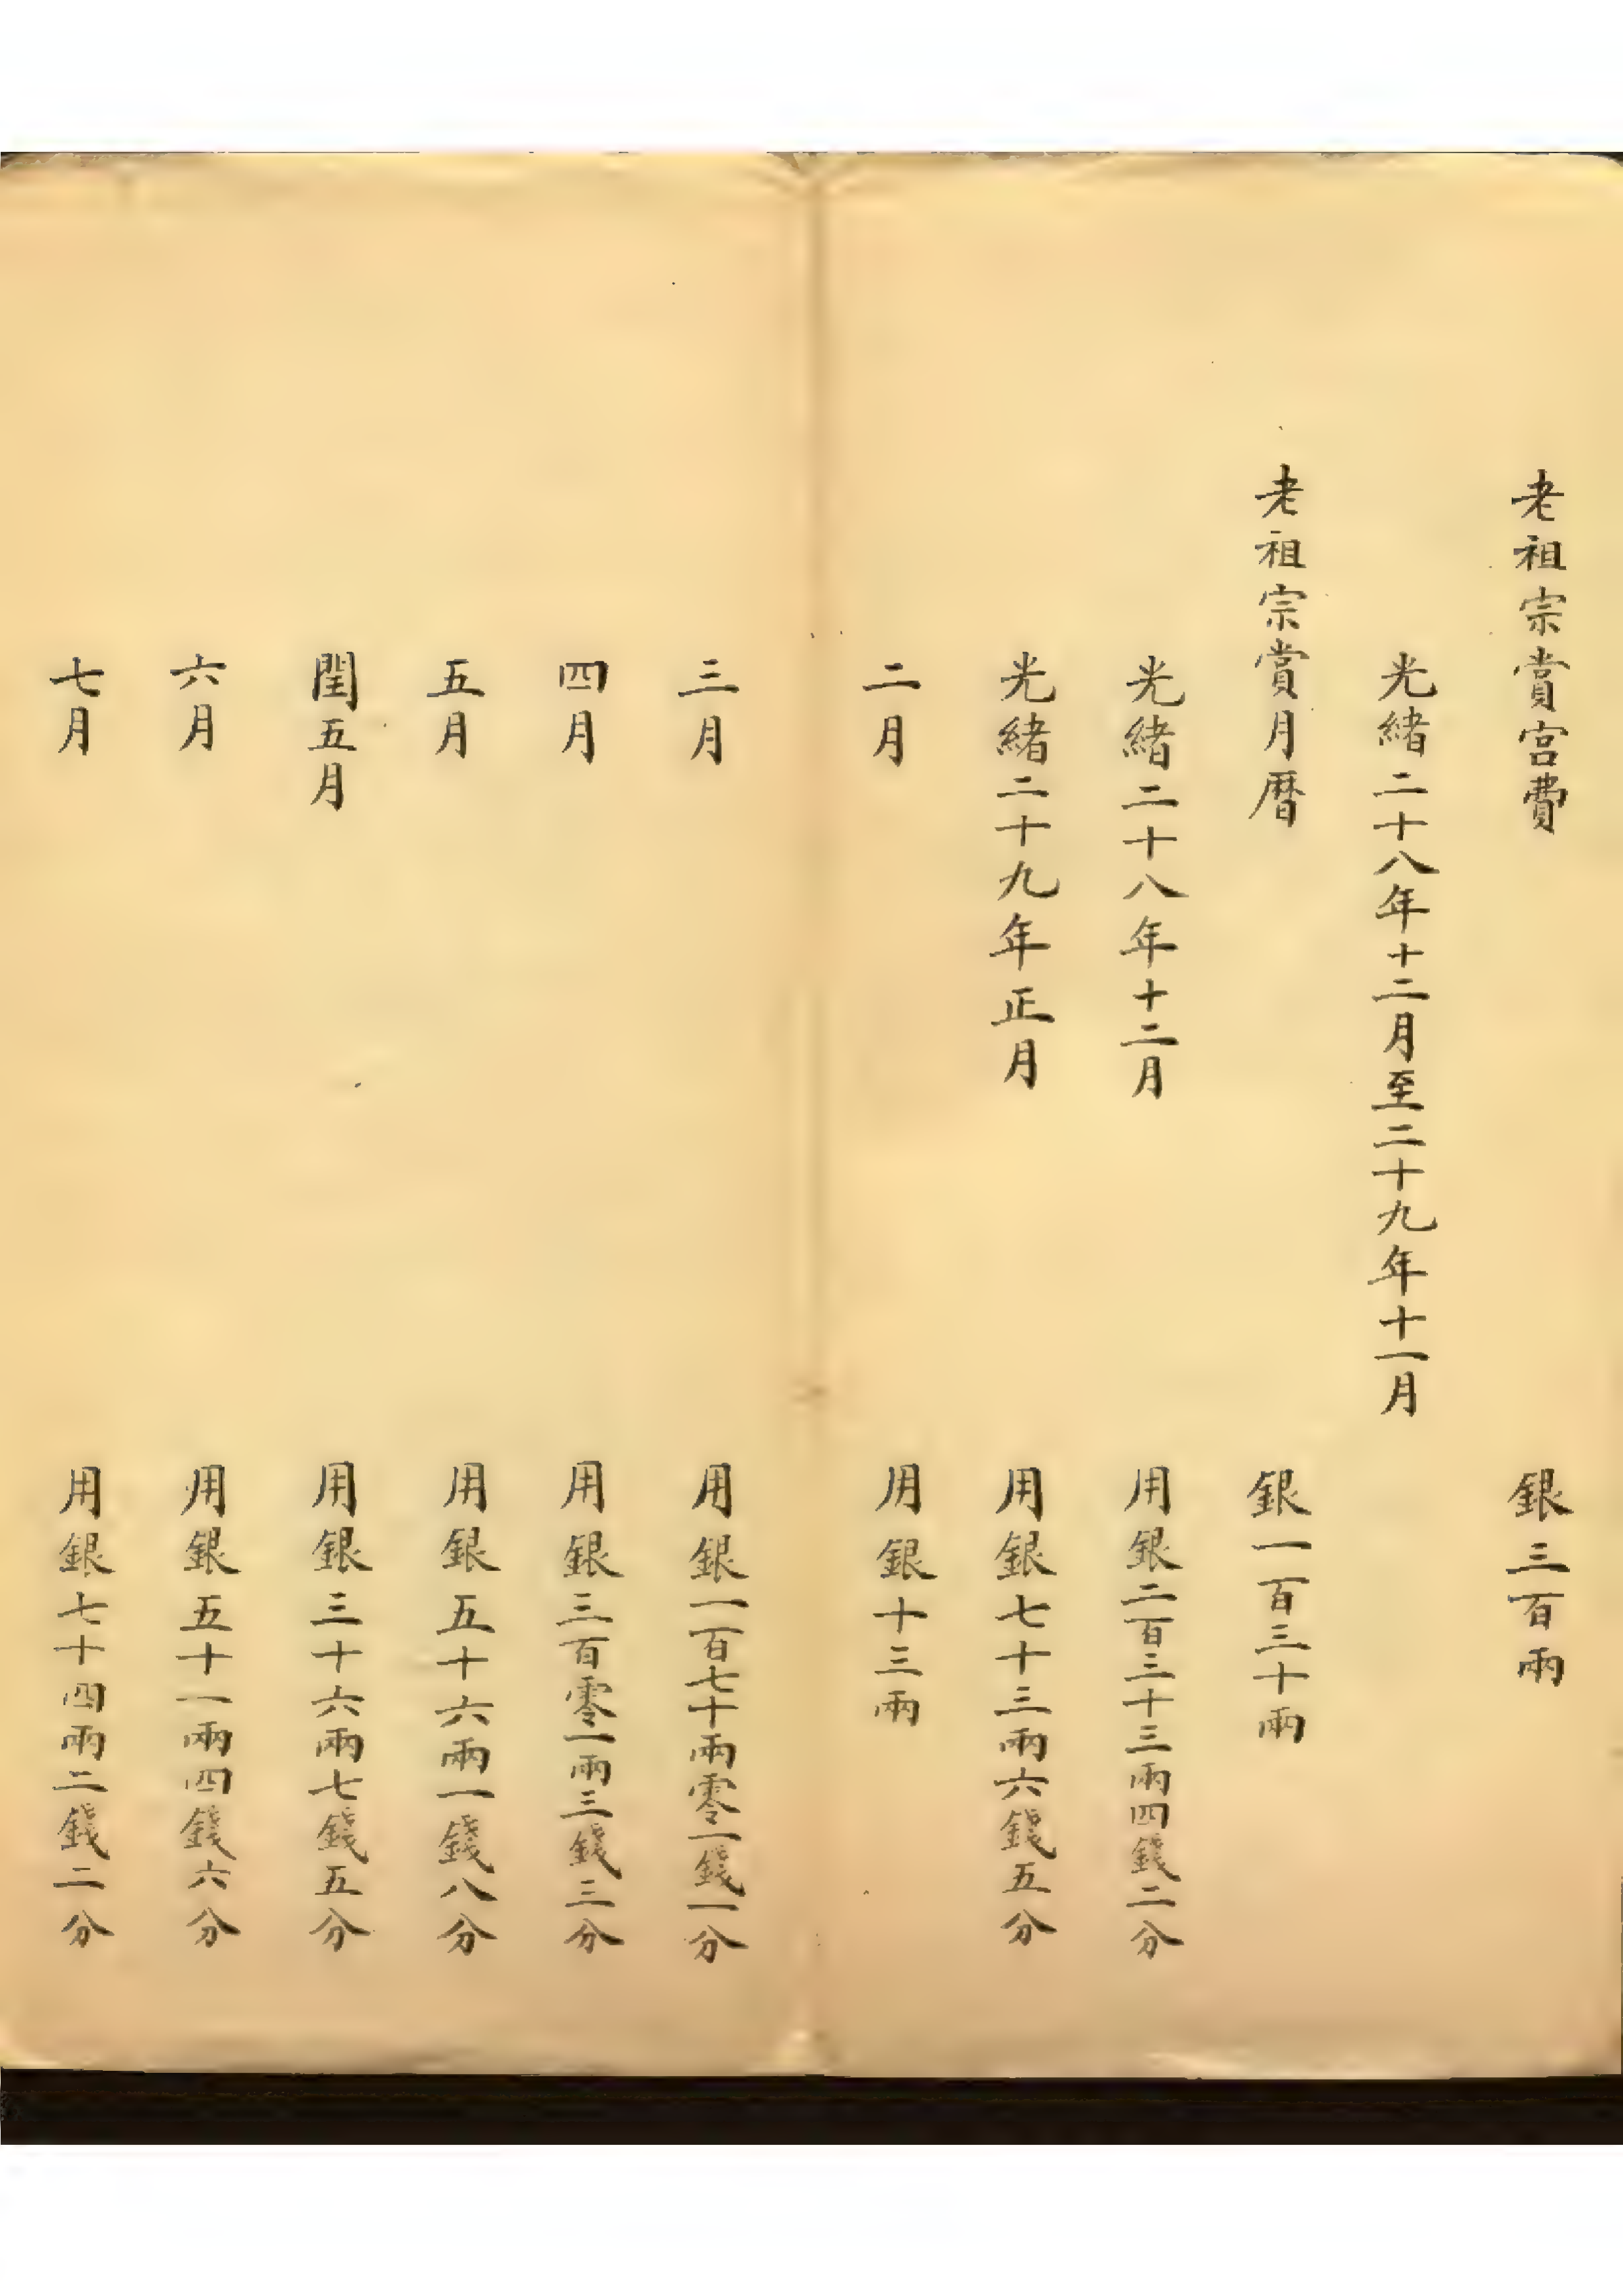 老祖宗賞宮費 銀三百兩
光緒二十八年十二月至二十九年十一月
老祖宗賞月曆 銀一百三十兩
光緒二十八年十二月 用銀二百三十三兩四錢二分
光緒二十九年正月 用銀七十三兩六錢五分
二月 用銀十三兩
三月 用銀一百七十兩零一錢一分
四月 用銀三百零一兩三錢三分
五月 用銀五十六兩一錢八分
閏五月 用銀三十六兩七錢五分
六月 用銀五十一兩四錢六分
七月 用銀七十四兩二錢二分